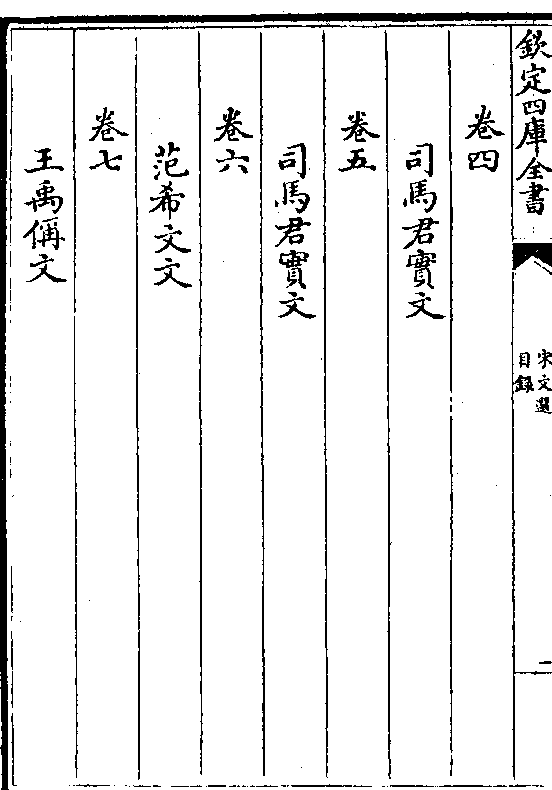 欽定四庫全書
宋文選
目錄
二
卷四
司馬君實文
卷五
司馬君實文
卷六
范希文文
卷七
王禹偁文